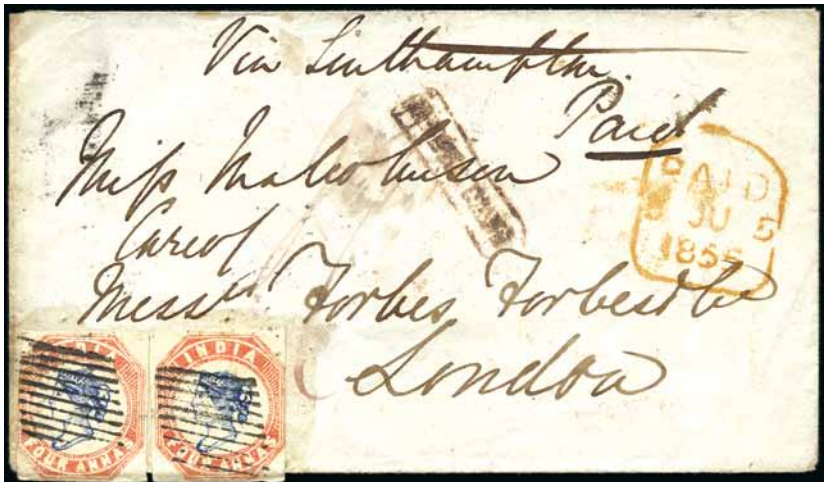 Via Southampton.
Paid
Miss Malcolmson
Care of
Mess^rs Forbes Forbes & Co
London
PAID
JU 5
185
INDIA
FOUR ANNAS
INDIA
FOUR ANNAS